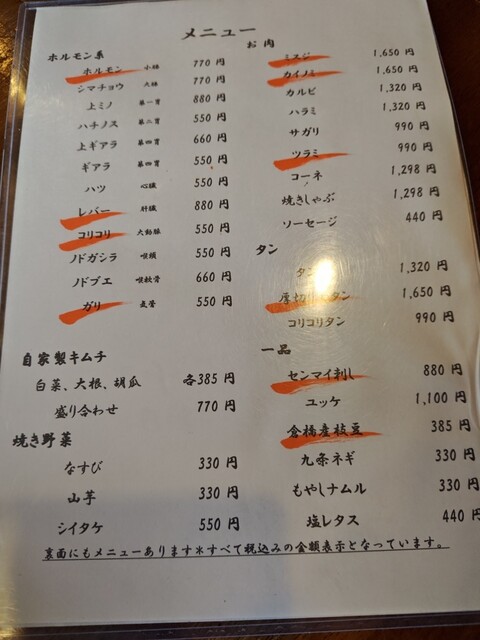 メニュー
ホルモン系
ホルモン 小腸 770 円
シマチョウ 大腸 770 円
上ミノ 第一胃 880 円
ハチノス 第二胃 550 円
上ギアラ 第四胃 660 円
ギアラ 第四胃 550 円
ハツ 心臓 550 円
レバー 肝臓 880 円
コリコリ 大動脈 550 円
ノドガシラ 咽頭 550 円
ノドブエ 咽軟骨 660 円
ガリ 気管 550 円
自家製キムチ
白菜、大根、胡瓜 各385 円
盛り合わせ 770 円
焼き野菜
なすび 330 円
山芋 330 円
シイタケ 550 円
お肉
ミスジ 1,650 円
カイノミ 1,650 円
カルビ 1,320 円
ハラミ 1,320 円
サガリ 990 円
ツラミ 990 円
コーネ 1,298 円
焼きしゃぶ 1,298 円
ソーセージ 440 円
タン
タン 1,320 円
厚切り タン 1,650 円
コリコリタン 990 円
一品
センマイ刺し 880 円
ユッケ 1,100 円
倉橋産枝豆 385 円
九条ネギ 330 円
もやしナムル 330 円
塩レタス 440 円
裏面にもメニューあります＊すべて税込みの金額表示となっています。